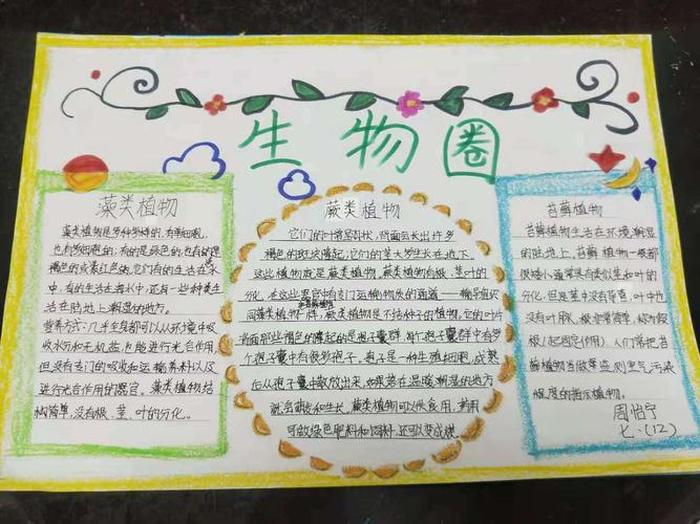 生物圈
藻类植物
藻类植物是多种多样的,有单细胞,
也有多细胞的;有的是绿色的,也有的是
褐色的或紫红色的,它们有的生活在淡水
中,有的生活在海水中,还有一些种类生
活在陆地上潮湿的地方。
营养方式:几乎全身都可以从环境中吸
收水分和无机盐,也能进行光合作用,
但没有专门的吸收和运输养料以及
进行光合作用的器官。藻类植物结
构简单,没有根、茎、叶的分化。
蕨类植物
它们的叶片呈羽状,背面会长出许多
褐色的斑块隆起;它们的茎大多生长在地下。
这些植物就是蕨类植物,蕨类植物有根、茎、叶的
分化,在这些器官中有专门运输物质的通道——输导组织
同藻类植物一样,蕨类植物是不结种子的植物,它的叶片
背面那些褐色的隆起的是孢子囊群,每个孢子囊中有多
个孢子囊中有很多孢子。孢子是一种生殖细胞,成熟
后从孢子囊中散放出来,如果落在温暖潮湿的地方
就会萌发和生长。蕨类植物可以供食用,药用
可做绿色肥料和饲料,还可以变成煤
苔藓植物
苔藓植物生活在环境潮湿
的陆地上,苔藓植物一般都
很矮小,通常具有类似茎和叶的
分化,但是茎中没有导管,叶中也
没有叶脉,根非常简单,称为假
根(起固定作用)人们常把苔
藓植物当做监测空气污染
程度的指示植物。
周怡宁
七·(12)